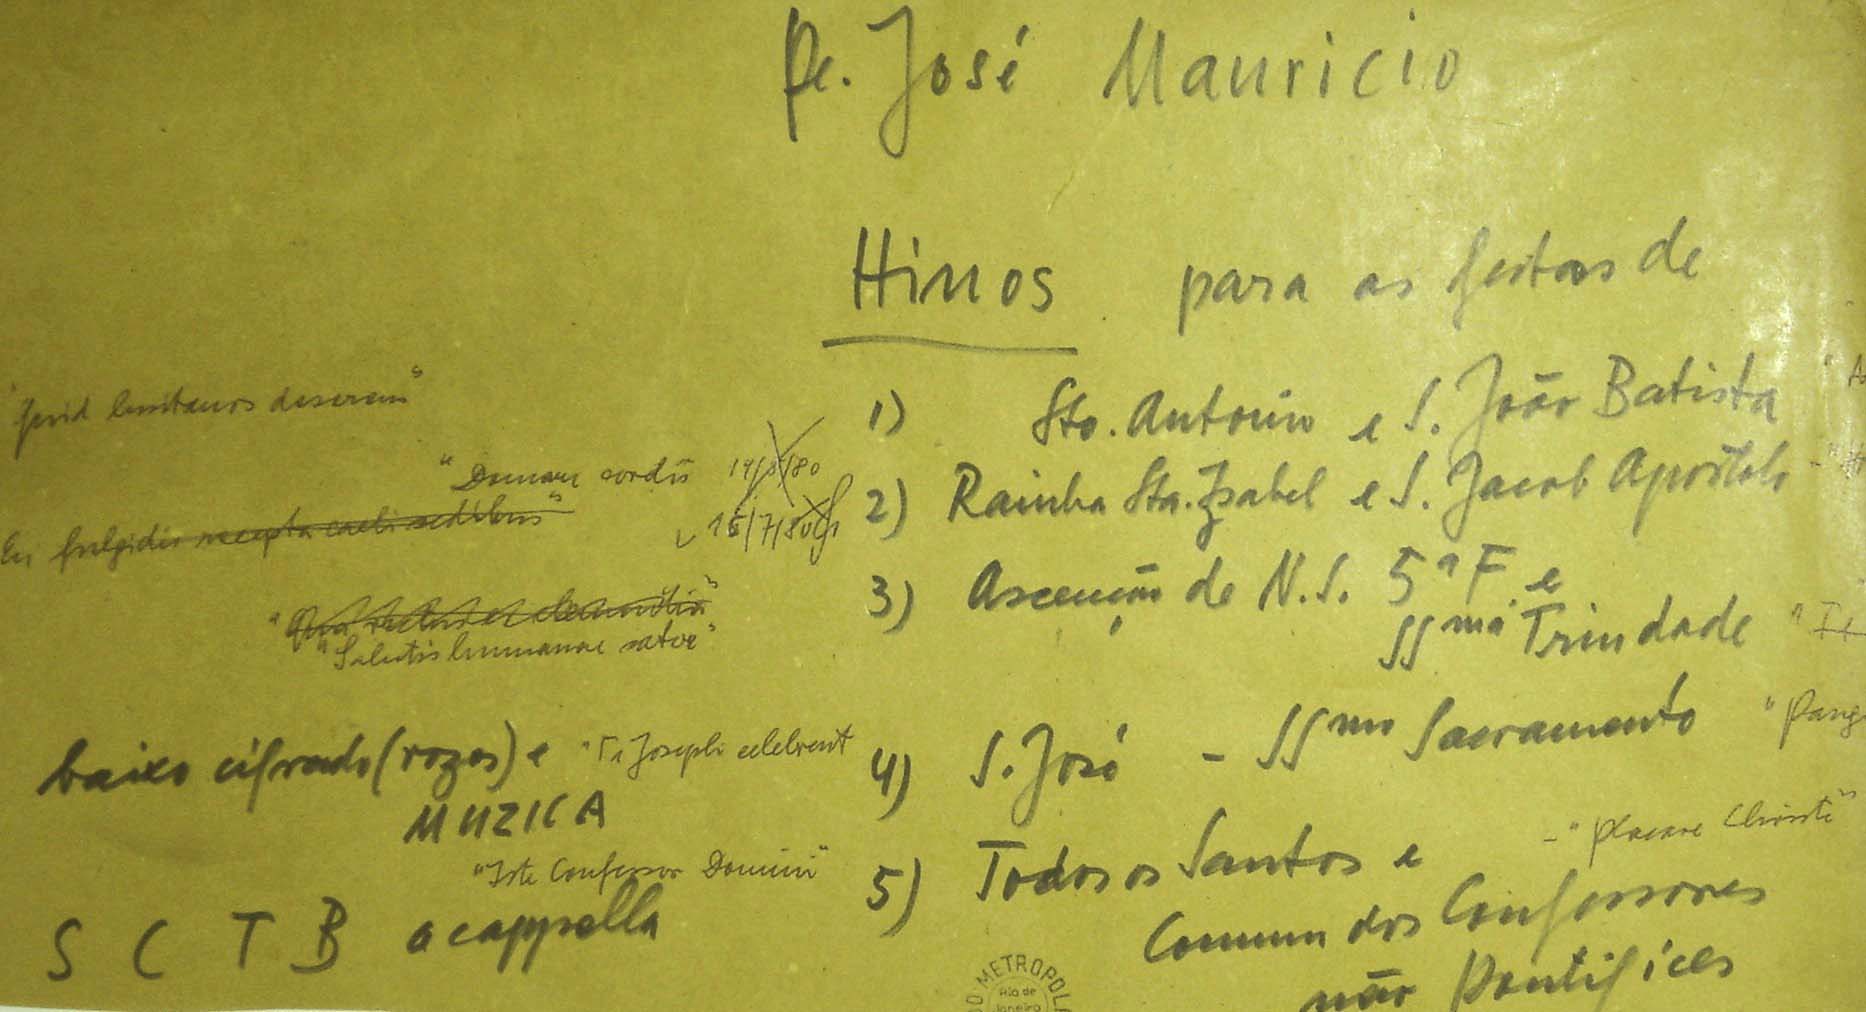 Pe. José Mauricio
Hinos para as festas de
"Quid lusitanos deserens"
1) Sto. Antonio e S. João Batista
"Domare cordis 14/ /80
2) Rainha Sta. Izabel e S. Jacob Apóstolo
En fulgidis recepta caeli sedibus"
15/7/80
3) Ascenção de N.S. 5ª F. e
SSma Trindade
"Salutis humanae sator"
baixo cifrado (vozes) e "Te Joseph celebrent
4) S. José - SSmo Sacramento "Pang
MUZICA
5) Todos os Santos e - "Placare Christe"
"Iste Confessor Domini"
Commun dos Confessores
não Pontifices
S C T B a cappella
METROPOL
Rio de
Janeiro